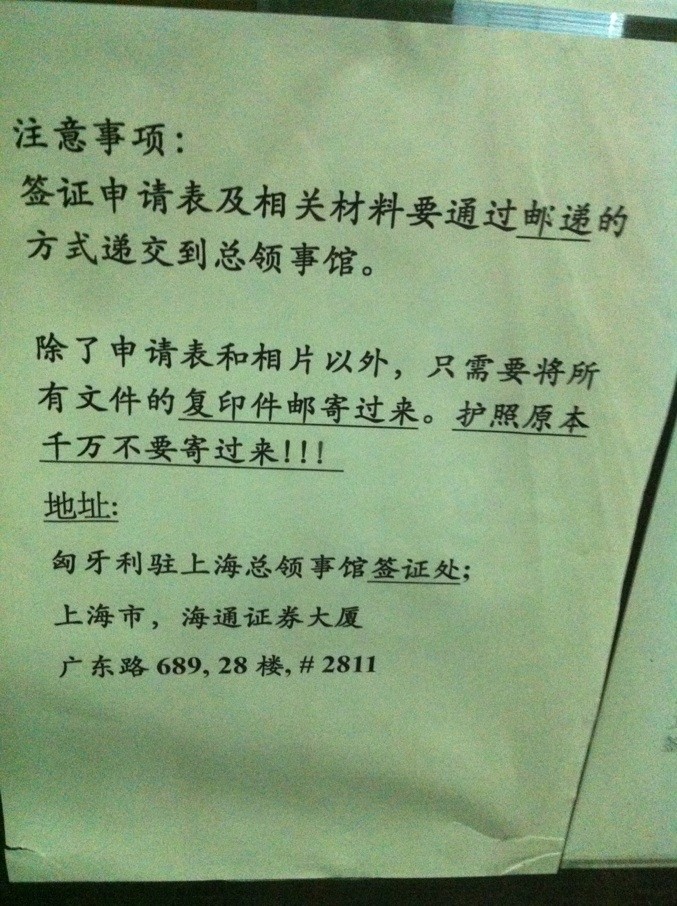 注意事项：
签证申请表及相关材料要通过邮递的
方式递交到总领事馆。
除了申请表和相片以外，只需要将所
有文件的复印件邮寄过来。护照原本
千万不要寄过来!!!
地址:
匈牙利驻上海总领事馆签证处;
上海市，海通证券大厦
广东路 689, 28 楼, # 2811